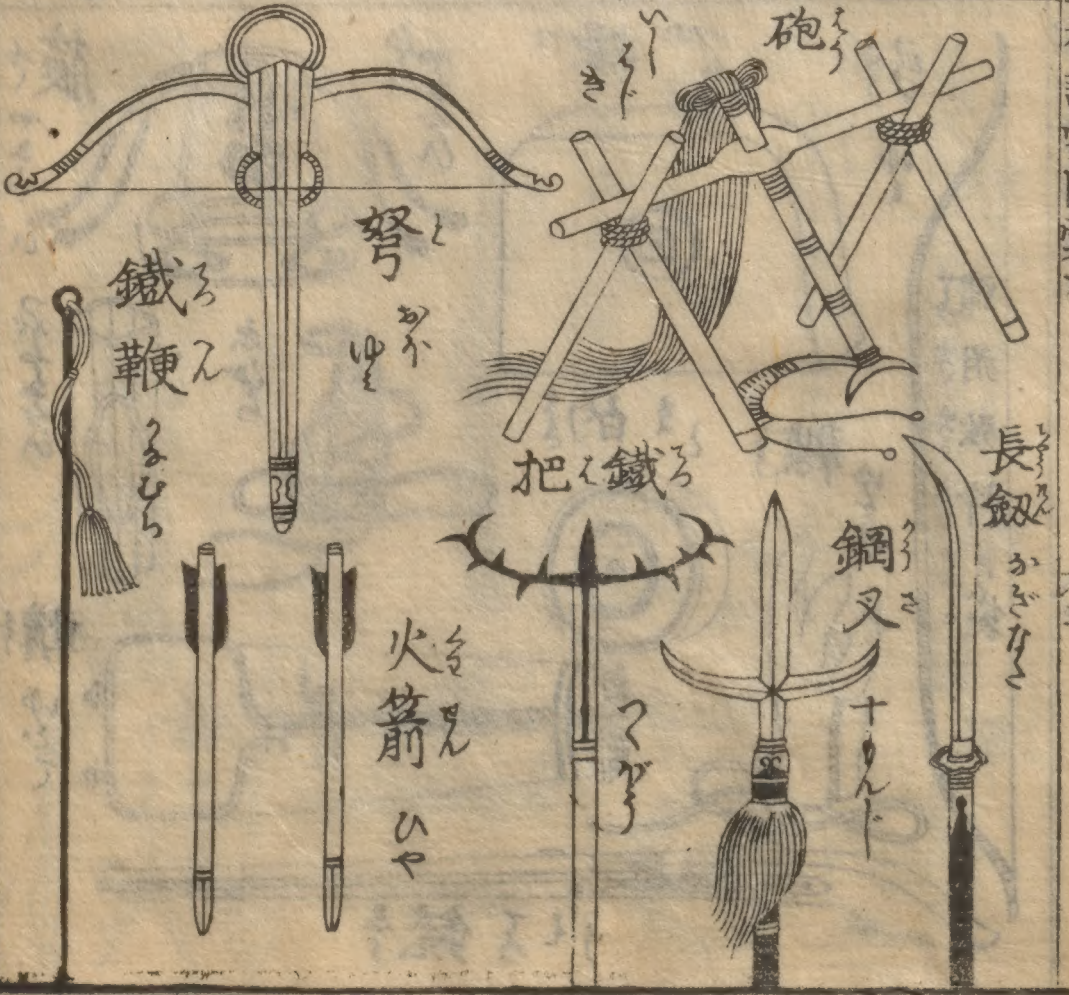 砲 はう
いしはじき
弩 ど
おほゆみ
鐵鞭 てつへん
かなむち
長劔 ちやうけん
なぎなた
鋼叉 かうさ
十もんじ
鐵把 てつは
つくぼう
火箭 くわせん
ひや